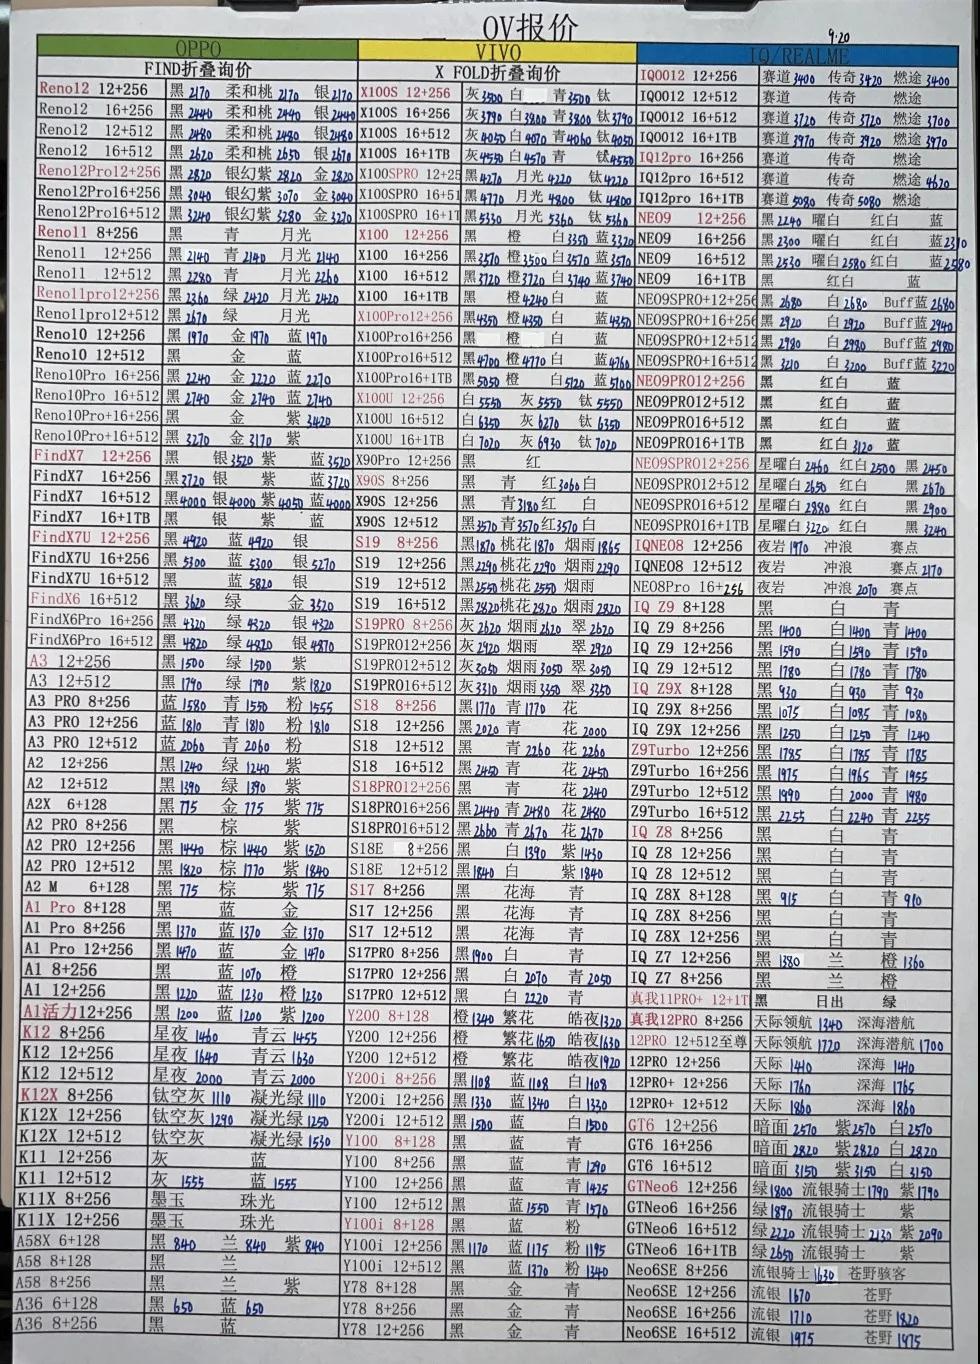 OV报价
9.20
OPPO VIVO IQ/REALME
FIND折叠询价 X FOLD折叠询价 IQOO12 12+256 赛道3400 传奇3420 燃途3400
Reno12 12+256 黑2170 柔和桃2170 银2170 X100S 12+256 灰3500 白 青3500 钛 IQOO12 12+512 赛道 传奇 燃途
Reno12 16+256 黑2440 柔和桃2440 银2440 X100S 16+256 灰3790 白3800 青3800 钛3790 IQOO12 16+512 赛道3720 传奇3720 燃途3700
Reno12 12+512 黑2480 柔和桃2480 银2480 X100S 16+512 灰4050 白4070 青4060 钛4050 IQOO12 16+1TB 赛道3970 传奇3920 燃途3970
Reno12 16+512 黑2620 柔和桃2650 银2670 X100S 16+1TB 灰4550 白4570 青 钛4550 IQ12pro 16+256 赛道 传奇 燃途
Reno12Pro12+256 黑2820 银幻紫2820 金2820 X100SPRO 12+25 黑4270 月光4220 钛4220 IQ12pro 16+512 赛道 传奇 燃途4620
Reno12Pro16+256 黑3040 银幻紫3070 金3040 X100SPRO 16+51 黑4770 月光4800 钛4800 IQ12pro 16+1TB 赛道5080 传奇5080 燃途
Reno12Pro16+512 黑3240 银幻紫3280 金3270 X100SPRO 16+1T 黑5330 月光5360 钛5360 NEO9 12+256 黑2240 曜白 红白 蓝
Reno11 8+256 黑 青 月光 X100 12+256 黑 橙 白3350 蓝3320 NEO9 16+256 黑2300 曜白 红白 蓝2310
Reno11 12+256 黑2140 青2140 月光2140 X100 16+256 黑3570 橙3500 白3570 蓝3570 NEO9 16+512 黑2530 曜白2580 红白 蓝2580
Reno11 12+512 黑2280 青 月光2260 X100 16+512 黑3720 橙3720 白3740 蓝3740 NEO9 16+1TB 黑 红白 蓝
Reno11pro12+256 黑2360 绿2420 月光2420 X100 16+1TB 黑 橙4240 白 蓝 NEO9SPRO+12+256 黑2680 白2680 Buff蓝2680
Reno11pro12+512 黑2670 绿 月光 X100Pro12+256 黑4350 橙4350 白 蓝4350 NEO9SPRO+16+256 黑2920 白2920 Buff蓝2940
Reno10 12+256 黑1970 金1970 蓝1970 X100Pro16+256 黑 橙 白 蓝 NEO9SPRO+12+512 黑2980 白2980 Buff蓝2980
Reno10 12+512 黑 金 蓝 X100Pro16+512 黑4700 橙4770 白 蓝4760 NEO9SPRO+16+512 黑3210 白3200 Buff蓝3220
Reno10Pro 16+256 黑2240 金2220 蓝2270 X100Pro16+1TB 黑5050 橙 白5120 蓝5100 NEO9PRO12+256 黑 红白 蓝
Reno10Pro 16+512 黑2740 金2740 蓝2740 X100U 12+256 白5550 灰5550 钛5550 NEO9PRO12+512 黑 红白 蓝
Reno10Pro+16+256 黑 金 紫3420 X100U 16+512 白6350 灰6270 钛6350 NEO9PRO16+512 黑 红白 蓝
Reno10Pro+16+512 黑3270 金3170 紫 X100U 16+1TB 白7020 灰6930 钛7020 NEO9PRO16+1TB 黑 红白3120 蓝
FindX7 12+256 黑 银3520 紫 蓝3520 X90Pro 12+256 黑 红 NEO9SPRO12+256 星曜白2460 红白2500 黑2450
FindX7 16+256 黑3720 银 紫 蓝3720 X90S 8+256 黑 青 红3060 白 NEO9SPRO12+512 星曜白2650 红白 黑2670
FindX7 16+512 黑4000 银4000 紫4050 蓝4000 X90S 12+256 黑 青3180 红 白 NEO9SPRO16+512 星曜白2880 红白 黑2900
FindX7 16+1TB 黑 银 紫 蓝 X90S 12+512 黑3570 青3570 红3570 白 NEO9SPRO16+1TB 星曜白3220 红白 黑3240
FindX7U 12+256 黑4920 蓝4920 银 S19 8+256 黑1870 桃花1870 烟雨1865 IQNEO8 12+256 夜岩1970 冲浪 赛点
FindX7U 16+256 黑5300 蓝5300 银5270 S19 12+256 黑2290 桃花2290 烟雨2290 IQNEO8 12+512 夜岩 冲浪 赛点2170
FindX7U 16+512 黑 蓝5820 银 S19 12+512 黑2550 桃花2550 烟雨 NEO8Pro 16+256 夜岩 冲浪2070 赛点
FindX6 16+512 黑3620 绿 金3520 S19 16+512 黑2820 桃花2820 烟雨2820 IQ Z9 8+128 黑 白 青
FindX6Pro 16+256 黑4320 绿4320 银4320 S19PRO 8+256 灰2620 烟雨2620 翠2620 IQ Z9 8+256 黑1400 白1400 青1400
FindX6Pro 16+512 黑4820 绿4820 银4870 S19PRO12+256 灰2920 烟雨 翠2920 IQ Z9 12+256 黑1590 白1590 青1590
A3 12+256 黑1500 绿1500 紫 S19PRO12+512 灰3050 烟雨3050 翠3050 IQ Z9 12+512 黑1780 白1780 青1780
A3 12+512 黑1790 绿1790 紫1820 S19PRO16+512 灰3310 烟雨3350 翠3350 IQ Z9X 8+128 黑930 白930 青930
A3 PRO 8+256 蓝1580 青1550 粉1555 S18 8+256 黑1770 青1770 花 IQ Z9X 8+256 黑1075 白1085 青1080
A3 PRO 12+256 蓝1810 青1810 粉1810 S18 12+256 黑2020 青 花2000 IQ Z9X 12+256 黑1250 白1250 青1240
A3 PRO 12+512 蓝2060 青2060 粉 S18 12+512 黑 青2260 花2260 Z9Turbo 12+256 黑1785 白1785 青1785
A2 12+256 黑1240 绿1240 紫 S18 16+512 黑2450 青 花2450 Z9Turbo 16+256 黑1975 白1965 青1955
A2 12+512 黑1390 绿1390 紫 S18PRO12+256 黑 青 花2340 Z9Turbo 12+512 黑1990 白2000 青1980
A2X 6+128 黑775 金775 紫775 S18PRO16+256 黑2440 青2480 花2480 Z9Turbo 16+512 黑2255 白2240 青2255
A2 PRO 8+256 黑 棕 紫 S18PRO16+512 黑2660 青2670 花2670 IQ Z8 8+256 黑 白 青
A2 PRO 12+256 黑1440 棕1440 紫1520 S18E 8+256 黑 白1390 紫1430 IQ Z8 12+256 黑 白 青
A2 PRO 12+512 黑1820 棕1770 紫1840 S18E 12+512 黑1840 白 紫1840 IQ Z8 12+512 黑 白 青
A2 M 6+128 黑775 棕 紫775 S17 8+256 黑 花海 青 IQ Z8X 8+128 黑915 白 青910
A1 Pro 8+128 黑 蓝 金 S17 12+256 黑 花海 青 IQ Z8X 8+256 黑 白 青
A1 Pro 8+256 黑1370 蓝1370 金1370 S17 12+512 黑 花海 青 IQ Z8X 12+256 黑 白 青
A1 Pro 12+256 黑1470 蓝 金1470 S17PRO 8+256 黑1900 白 青 IQ Z7 12+256 黑1380 兰 橙1360
A1 8+256 黑 蓝1070 橙 S17PRO 12+256 黑 白2070 青2050 IQ Z7 8+256 黑 兰 橙
A1 12+256 黑1220 蓝1230 橙1230 S17PRO 12+512 黑 白2220 青 真我11PRO+ 12+1T 黑 日出 绿
A1活力12+256 黑1200 蓝1200 紫1200 Y200 8+128 橙1340 繁花 皓夜1320 真我12PRO 8+256 天际领航1340 深海潜航
K12 8+256 星夜1460 青云1455 Y200 12+256 橙 繁花1650 皓夜1630 12PRO 12+512至尊 天际领航1720 深海潜航1700
K12 12+256 星夜1640 青云1630 Y200 12+512 橙 繁花 皓夜1920 12PRO 12+256 天际1410 深海1410
K12 12+512 星夜2000 青云2000 Y200i 8+256 黑1108 蓝1108 白1108 12PRO+ 12+256 天际1760 深海1765
K12X 8+256 钛空灰1110 凝光绿1110 Y200i 12+256 黑1330 蓝1340 白1330 12PRO+ 12+512 天际1860 深海1860
K12X 12+256 钛空灰1290 凝光绿1250 Y200i 12+512 黑1500 蓝 白1500 GT6 12+256 暗面2570 紫2570 白2570
K12X 12+512 钛空灰 凝光绿1530 Y100 8+128 黑 蓝 青 GT6 16+256 暗面2820 紫2820 白2820
K11 12+256 灰 蓝 Y100 8+256 黑 蓝 青1290 GT6 16+512 暗面3150 紫3150 白3150
K11 12+512 灰1555 蓝1555 Y100 12+256 黑 蓝 青1425 GTNeo6 12+256 绿1800 流银骑士1790 紫1790
K11X 8+256 墨玉 珠光 Y100 12+512 黑 蓝1550 青1570 GTNeo6 16+256 绿1890 流银骑士 紫
K11X 12+256 墨玉 珠光 Y100i 8+128 黑 蓝 粉 GTNeo6 16+512 绿2220 流银骑士2130 紫2090
A58X 6+128 黑840 兰840 紫840 Y100i 12+256 黑1170 蓝1175 粉1195 GTNeo6 16+1TB 绿2650 流银骑士 紫
A58 8+128 黑 兰 Y100i 12+512 黑 蓝1370 粉1340 Neo6SE 8+256 流银骑士1630 苍野骇客
A58 8+256 黑 兰 紫 Y78 8+128 黑 金 青 Neo6SE 12+256 流银1670 苍野
A36 6+128 黑650 蓝650 Y78 8+256 黑 金 青 Neo6SE 16+256 流银1710 苍野1820
A36 8+256 黑 蓝 Y78 12+256 黑 金 青 Neo6SE 16+512 流银1975 苍野1975